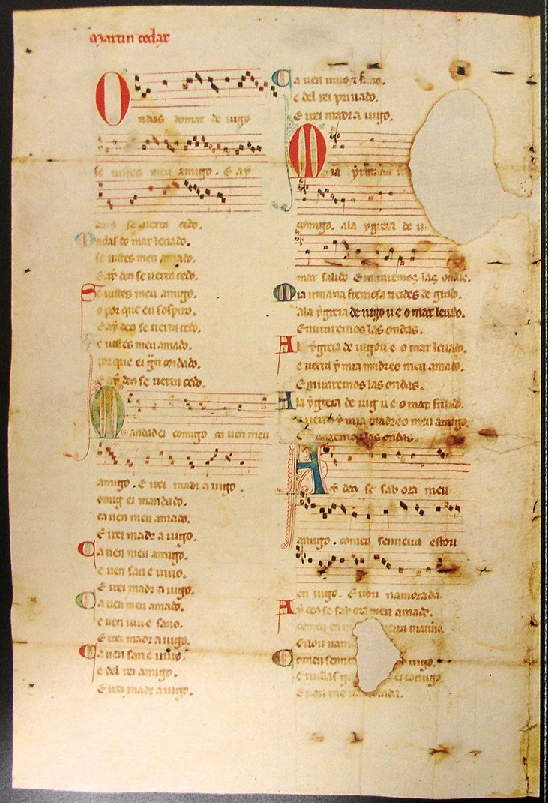 Martin codax
Ondas do mar de vigo
se uistes meu amigo. E ay
deus se uerra cedo.
Ondas do mar leuado.
se uistes meu amado.
E ay deus se uerra cedo.
Se uistes meu amigo.
o por que eu sospiro.
E ay deus se uerra cedo.
Se uistes meu amado.
por que ei gran coidado.
E ay deus se uerra cedo.
Mandadei comigo ca uen meu
amigo. E irei madr a uigo.
comig ei mandado.
ca uen meu amado.
E irei madr a uigo.
Ca uen meu amigo.
e uen san e uiuo.
E irei madr a uigo.
Ca uen meu amado.
e uen uiu e sano.
E irei madr a uigo.
Ca uen san e uiuo.
e del rei amigo.
E irei madr a uigo.
Ca uen uiu e sano.
e del rei priuado.
E irei madr a uigo.
Mia yrmana
comigo. ala ygreia de
mar salido. E miraremos las ondas.
Mia irmana fremosa treides de grado.
ala ygreia de uigo u e o mar leuado.
E miraremos las ondas.
A la ygreia de uigo u e o mar leuado.
e uerra y mia madre o meu amado.
E miraremos las ondas.
A la ygreia de uig u e o mar salido.
e uerra y mia madre o meu amigo.
E miraremos las ondas.
Ay deus se sab ora meu
amigo. com eu senneira estou
en uigo. E uou namorada.
Ay deus se sab ora meu amado.
com eu en manno.
E uou nam
Com eu senn uigo.
e nullas gardas comigo.
E uou namorada.